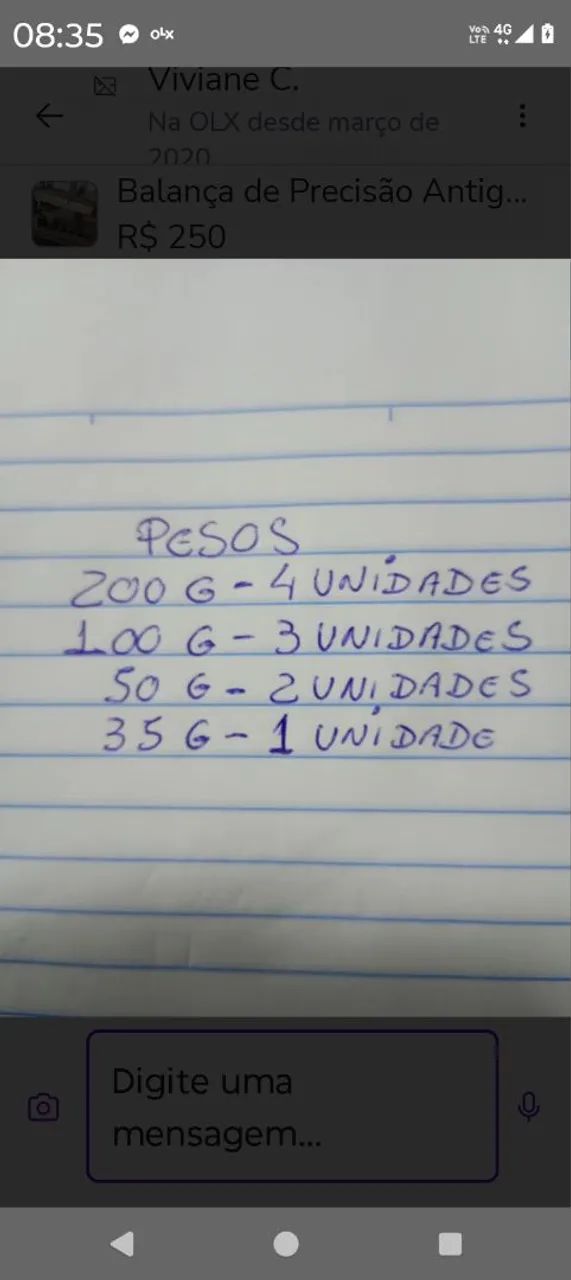 08:35 OLX Vo)) LTE 4G
Viviane C.
Na OLX desde março de
2020
Balança de Precisão Antig...
R$ 250
PESOS
200 G - 4 UNIDADES
100 G - 3 UNIDADES
50 G - 2 UNIDADES
35 G - 1 UNIDADE
Digite uma
mensagem...